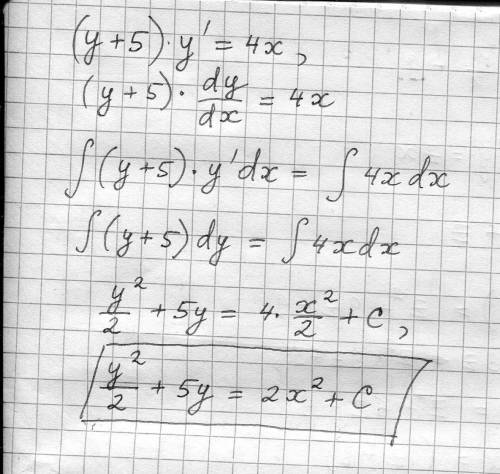 (y+5)·y' = 4x,
(y+5)·dy/dx = 4x
∫(y+5)·y'dx = ∫4xdx
∫(y+5)dy = ∫4xdx
y²/2 + 5y = 4·x²/2 + C,
y²/2 + 5y = 2x² + C